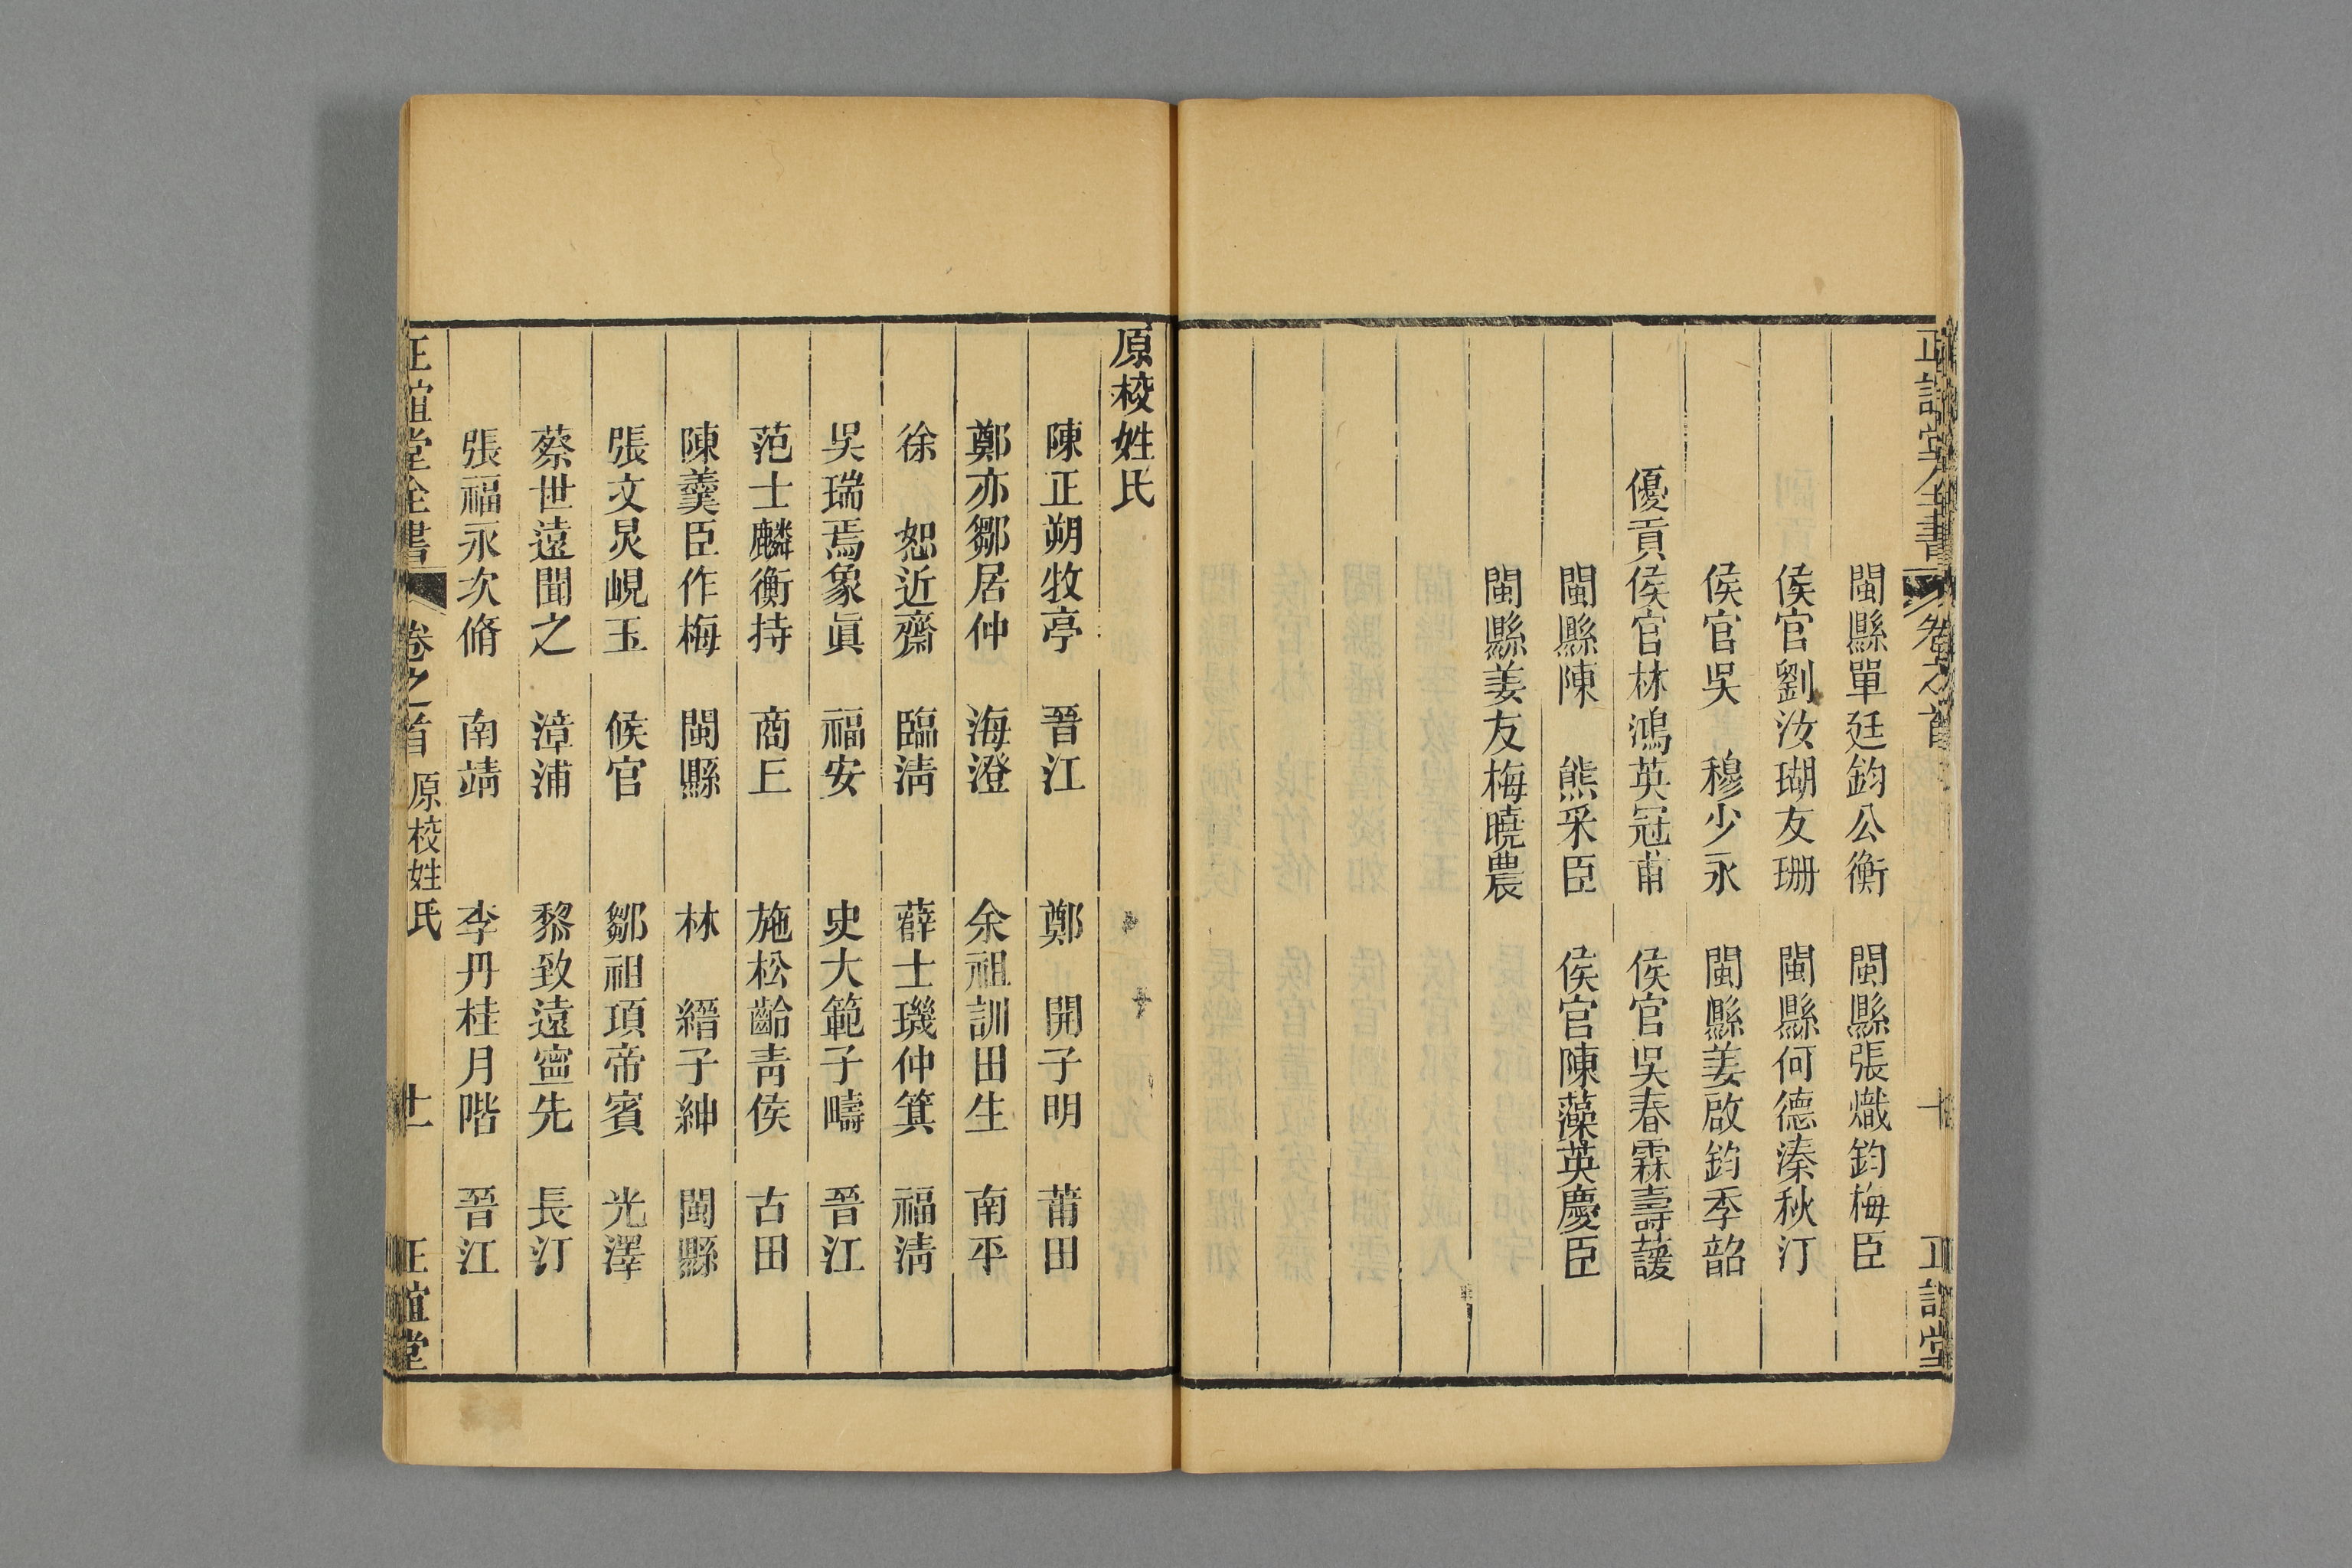 正誼堂全書 卷之首 十 正誼堂
閩縣單廷鈞公衡 閩縣張熾鈞梅臣
侯官劉汝瑚友珊 閩縣何德溱秋汀
侯官吳 穆少永 閩縣姜啟鈞季韶
優貢侯官林鴻英冠甫 侯官吳春霖壽護
閩縣陳 熊采臣 侯官陳藻英慶臣
閩縣姜友梅曉農
原校姓氏
陳正朔牧亭 晉江 鄭 開子明 莆田
鄭亦鄒居仲 海澄 余祖訓田生 南平
徐 恕近齋 臨淸 薛士璣仲箕 福淸
吳瑞焉象眞 福安 史大範子疇 晉江
范士麟衡持 商丘 施松齡靑侯 古田
陳羹臣作梅 閩縣 林 縉子紳 閩縣
張文炅峴玉 候官 鄒祖項帝賓 光澤
蔡世遠聞之 漳浦 黎致遠寗先 長汀
張福永次脩 南靖 李丹桂月階 晉江
正誼堂全書 卷之首 原校姓氏 十一 正誼堂